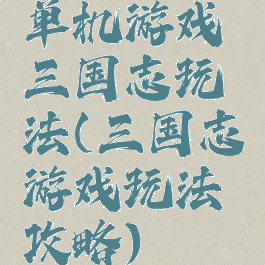 单机游戏
三国志玩
法(三国志
游戏玩法
攻略)